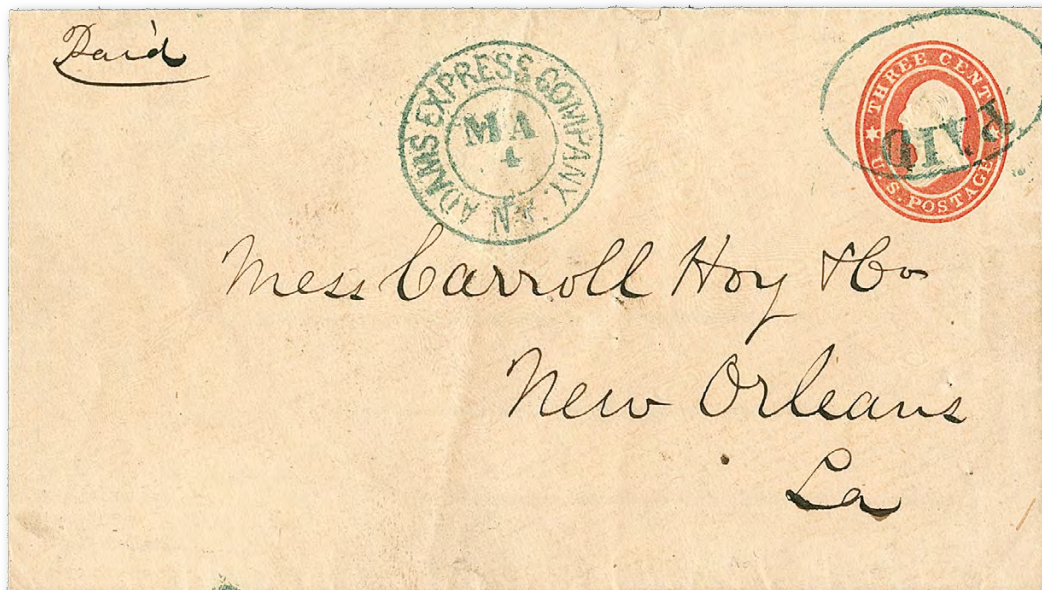 Paid
ADAMS EXPRESS COMPANY.
MA
4
THREE CENTS
U.S. POSTAGE
PAID
Mess Carroll Hoy & Co
New Orleans
La